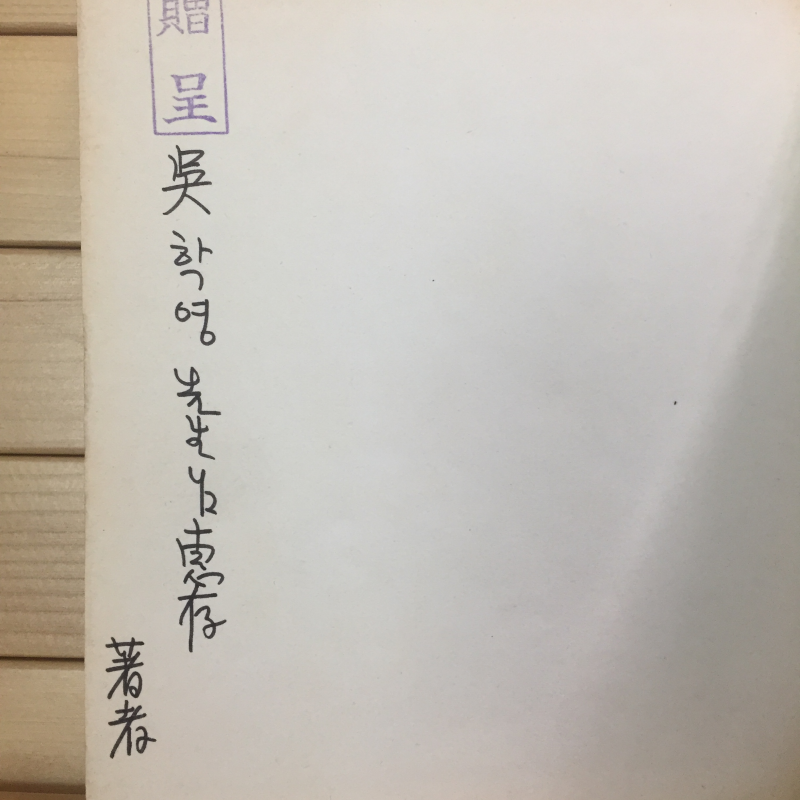 贈呈
吳학영 先生님 惠存
著者